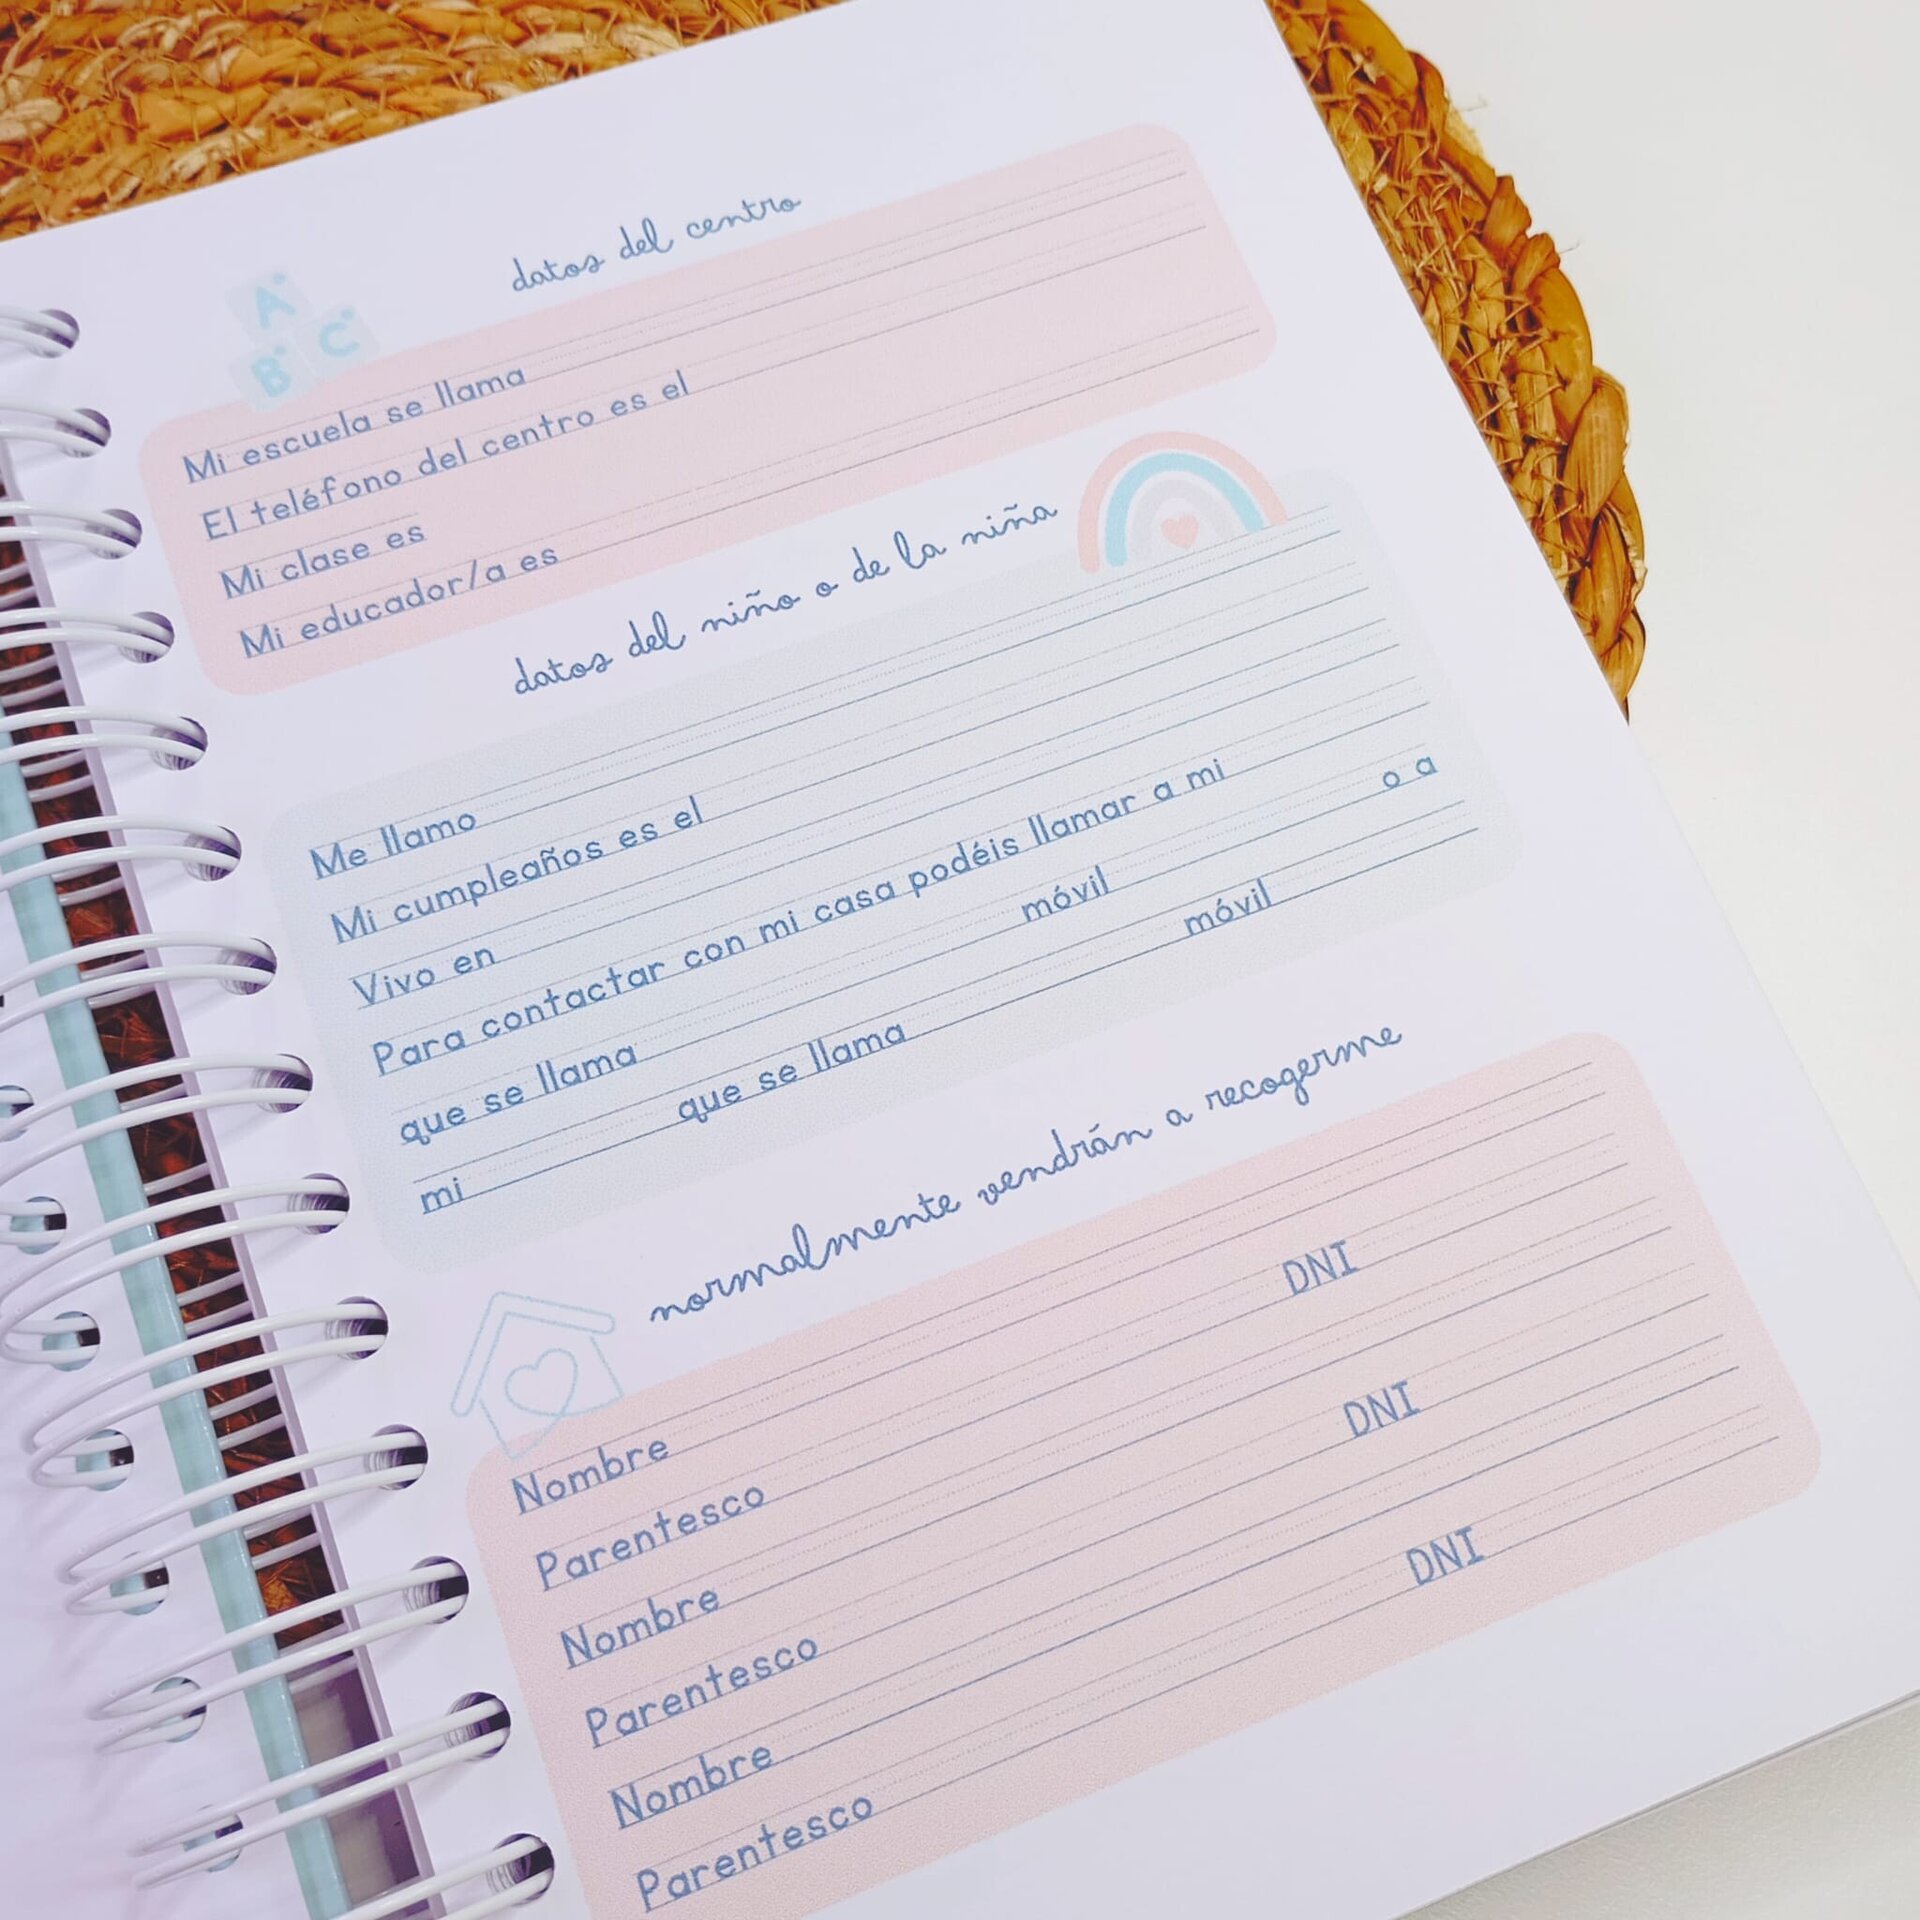 A
B C
datos del centro
Mi escuela se llama
El teléfono del centro es el
Mi clase es
Mi educador/a es
datos del niño o de la niña
Me llamo
Mi cumpleaños es el
Vivo en
Para contactar con mi casa podéis llamar a mi
que se llama móvil o a
mi que se llama móvil
normalmente vendrán a recogerme
Nombre
Parentesco DNI
Nombre
Parentesco DNI
Nombre
Parentesco DNI